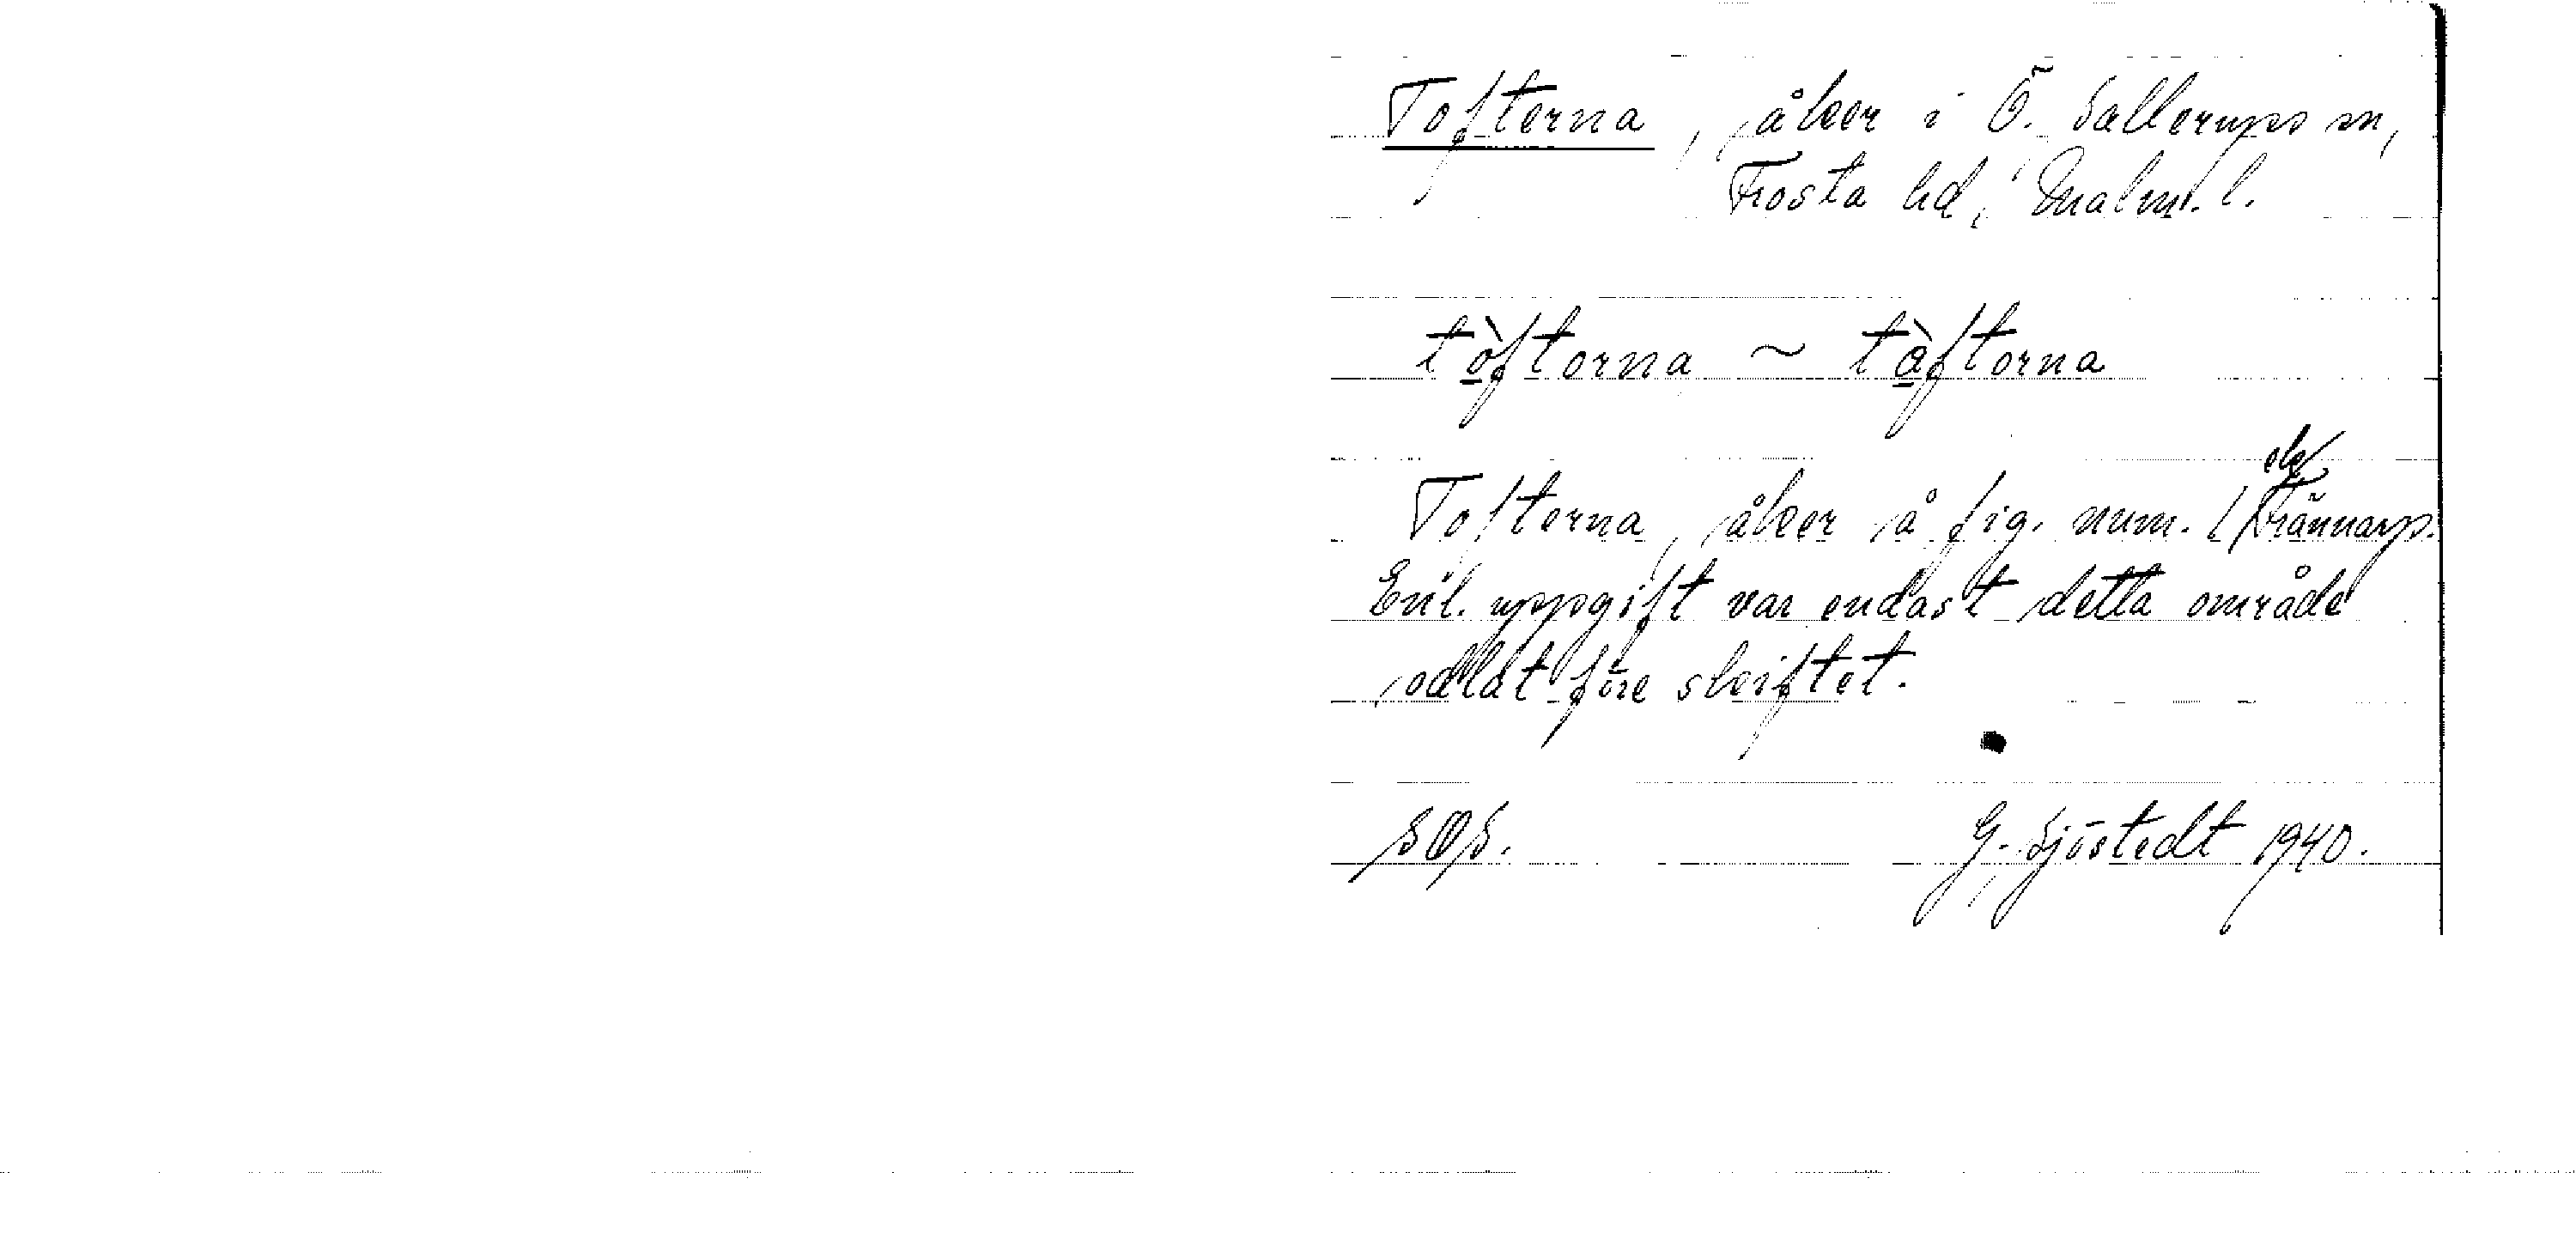 Tofterna, åker i Ö. Sallerups sn,
Frosta hd, Malm. l.
tòftorna ~ tàftorna
Tofterna, åker å fig. num. 1
Enl. uppgift var endast detta område
odlat före skiftet.
SOS. G. Sjöstedt 1940.